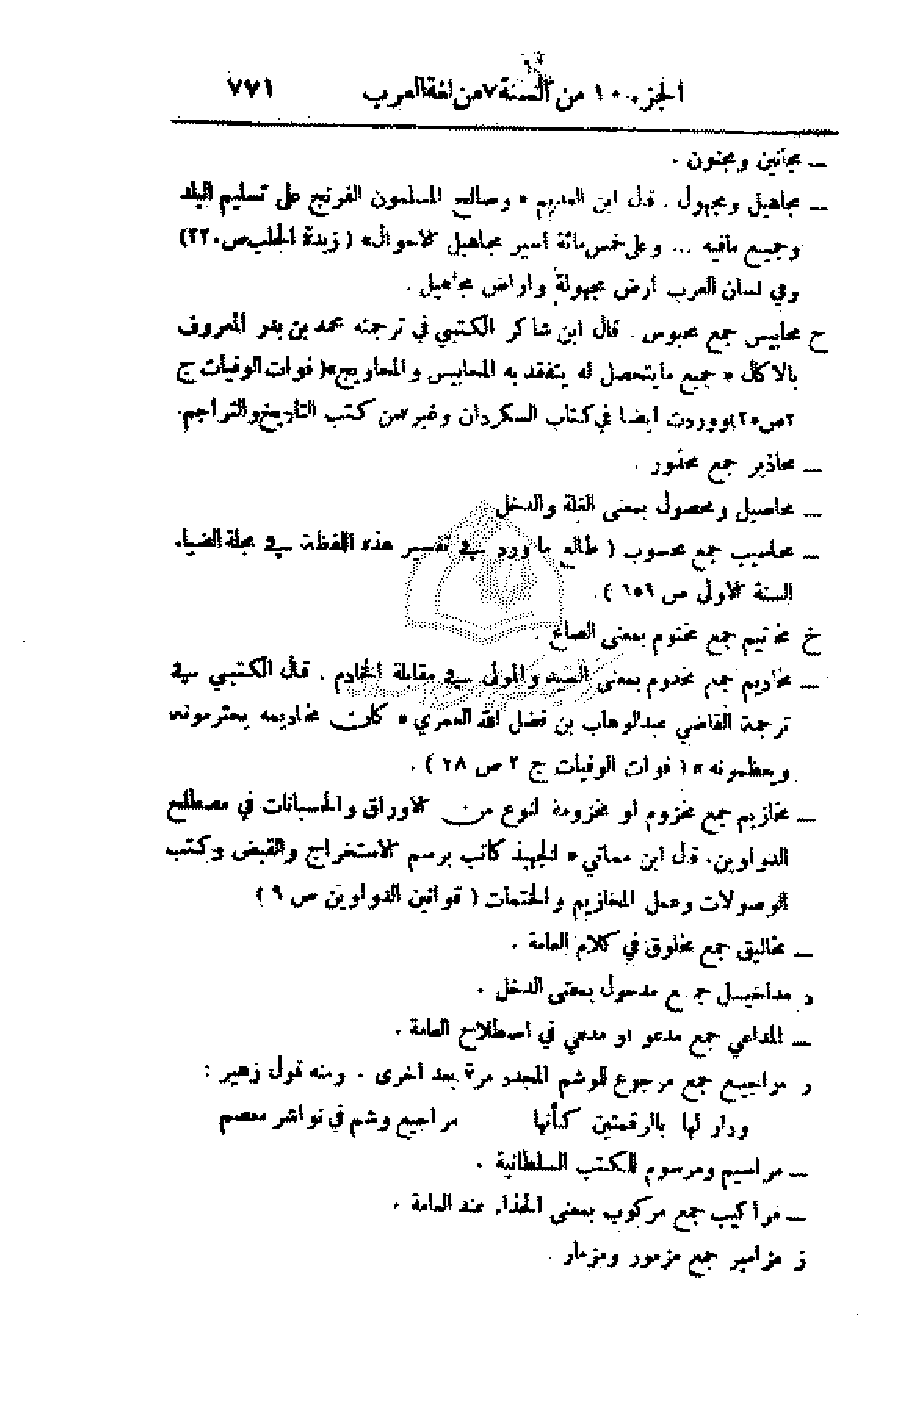 الجزء ١٠ من السنة ٧ من لغة العرب ٧٧١
ــ مجانين ومجنون .
ــ مجاهيل ومجهول . قال ابن العديم « وصالح المسلمون الفرنج على تسليم البلد
وجميع مافيه ... وعلى خمس مائة أسير مجاهيل الاحوال» (زبدة الحلب ص ٢٢٠)
وفي لسان العرب أرض مجهولة واراض مجاهيل .
ح محابيس جمع محبوس . قال ابن شاكر الكتبي في ترجمته محمد بن بدر المعروف
بالاكال « جميع ما يتحصل له يتفقد به المحابيس والمحاويج» (فوات الوفيات ج
٢ص ٢٥) ووردت ايضا في كتاب السكردان وغير من كتب التاريخ والتراجم.
ــ محاذير جمع محذور .
ــ محاصيل ومحصول بمعنى الغلة والدخل
ــ محاسيب جمع محسوب ( طالع ما ورد في تفسير هذه اللفظة في مجلة الضياء
السنة الاولى ص ٦٥٦ ) .
خ مخاتيم جمع مختوم بمعنى الصاع .
ــ مخاديم جمع مخدوم بمعنى السيد والمولى في مقابلة الخادم . قال الكتبي في
ترجمة القاضي عبدالوهاب بن فضل الله العمري « كان مخاديمه يحترمونه
ويعظمونه » ( فوات الوفيات ج ٢ ص ٢٨ ) .
ــ مخازيم جمع مخزوم او مخزومة لنوع من الاوراق والحسبانات في مصطلح
الدواوين. قال ابن مماتي « الجهبذ كاتب برسم الاستخراج والقبض وكتب
الوصولات وعمل المخازيم والختمات ( قوانين الدواوين ص ٩ )
ــ مخاليق جمع مخلوق في كلام العامة .
د مداخيل جمع مدخول بمعنى الدخل .
ــ المداعي جمع مدعو او مدعي في اصطلاح العامة .
ر مراجيع جمع مرجوع للوشم المجدد مرة بعد أخرى . ومنه قول زهير :
ودار لها بالرقمتين كأنها مراجيع وشم في نواشر معصم
ــ مراسيم ومرسوم للكتب السلطانية .
ــ مراكيب جمع مركوب بمعنى الحذاء عند العامة .
ز مزامير جمع مزمور ومزمار .